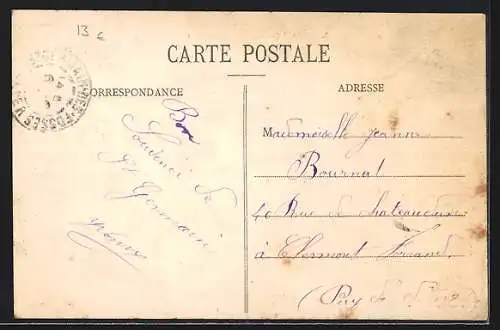 13 €
CARTE POSTALE
CORRESPONDANCE
ADRESSE
Bon
Souvenir de
St Germain
Mademoiselle Jeanne
Bournat
40 Rue de Chateaudun
à Clermont Ferrand
(Puy de Dôme)